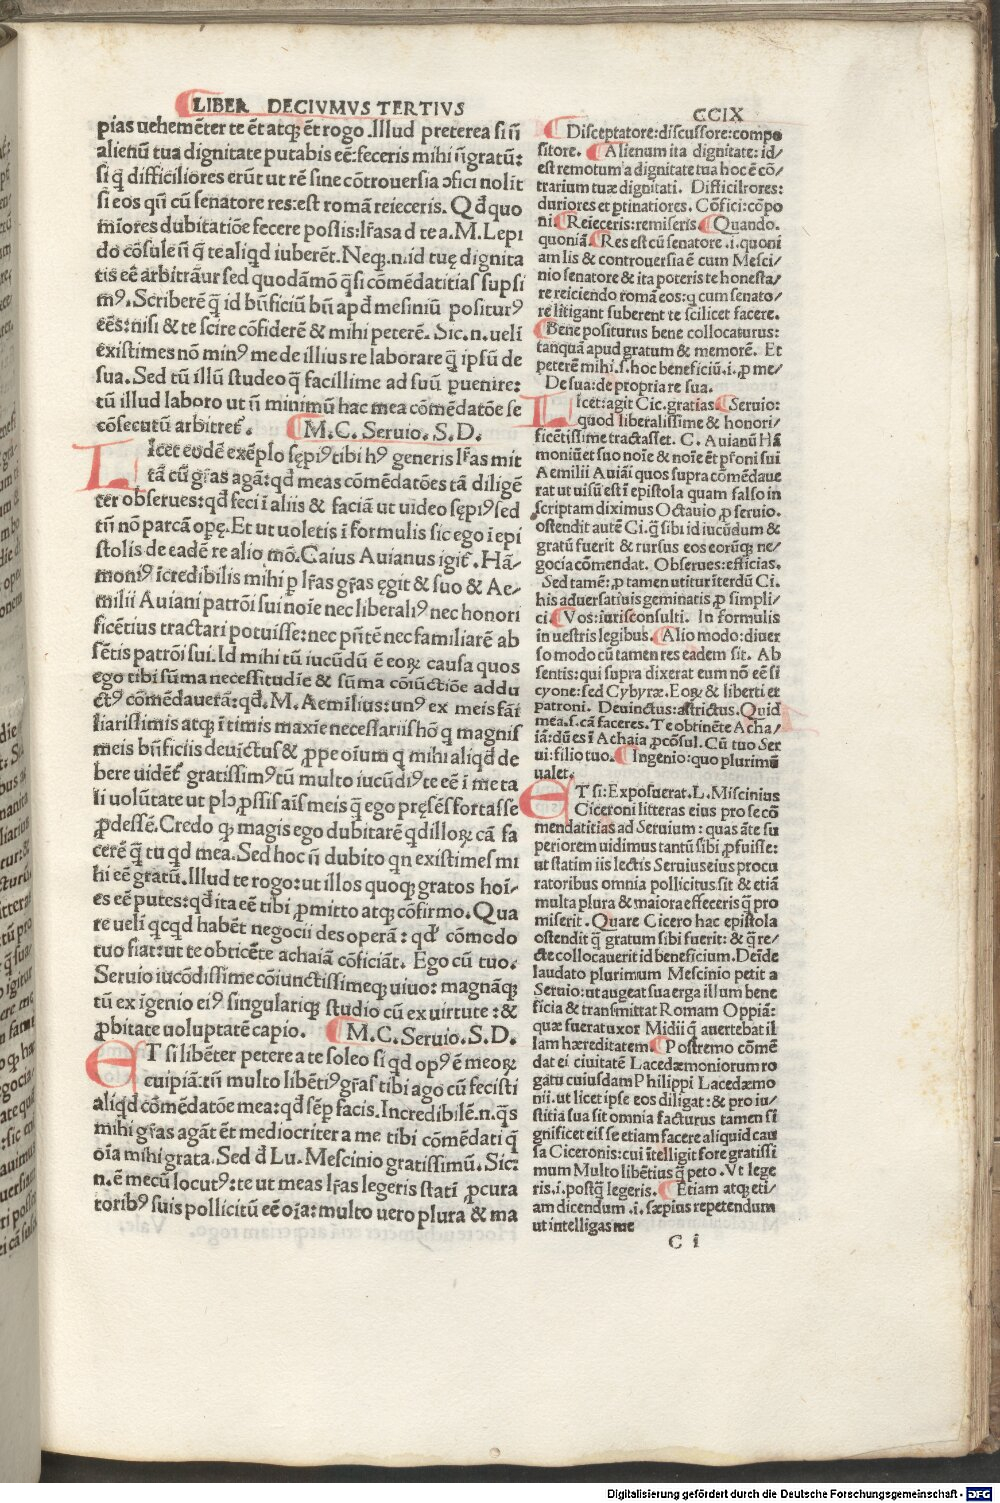 LIBER DECIVMVS TERTIVS
CCIX
pias uehemēter te ēt atq; ēt rogo. Illud preterea si ñ
alienū tua dignitate putabis eē: feceris mihi ꝑgratū:
si q̄ difficiliores erūt ut rē sine cōtrouersia ↄfici nolīt
si eos qñ cū senatore res: est romā reieceris. Qđ quo
miores dubitatiōe fecere possis: lr̄as ad te a. M. Lepi
do cōsule ñ q̄ te aliqđ iuberēt. Neq;.n. id tuę dignita
tis eē arbitrāur sed quodāmō q̄si cōmēdatitias supsi
m⁹. Scriberē q̄ id bñficiū bñ apđ mesiniū positur⁹
eēs: nisi & te scire cōfiderē & mihi peterē. Sic.n. uelī
existimes nō min⁹ me de illius re laborare q̄ ipsū de
sua. Sed tū illū studeo q̄ facillime ad suū puenire:
tū illud laboro ut ñ minimū hac mea cōmēdatōe se
cōsecutū arbitret̄.
M. C. Seruio. S. D.
LIcet eodē exēplo sępi⁹ tibi h⁹ generis lr̄as mit
tā cū gr̄as agā: qđ meas cōmēdatōes tā diligē
ter obserues: qđ feci ī aliis & faciā ut uideo sępi⁹ sed
tñ nō parcā opę. Et ut uoletis ī formulis sic ego ī epi
stolis de eadē re alio mō. Caius Auianus igit̄. Hā/
moni⁹ īcredibilis mihi p lr̄as gr̄as ęgit & suo & Ae/
milii Auiani patrōi sui noīe nec liberali⁹ nec honori
ficētius tractari potuisse: nec pñtē nec familiarē ab
sētis patrōi sui. Id mihi tū iucūdū ē eoꝝ causa quos
ego tibi sūma necessitudīe & sūma cōiūctiōe addu
ct⁹ cōmēdauerā: qđ. M. Aemilius: un⁹ ex meis fāī
liarissimis atq; ī timis maxīe necessariis hō q̄ magnis
meis bñficiis deuictus & ꝓpe oīum q̄ mihi aliqđ de
bere uidēt̄ gratissim⁹ tū multo iucūdi⁹ te eē ī me ta
li uolūtate ut pl⁹ ꝓssīs aīs meis q̄ ego pręsēs fortasse
ꝓdessē. Credo q; magis ego dubitarē qđ illoꝝ cā fa
cerē q̄ tu qđ mea. Sed hoc ñ dubito qn existimes mi
hi eē gratū. Illud te rogo: ut illos quoq; gratos hoī/
es eē putes: qđ ita eē tibi ꝓmitto atq; cōfirmo. Qua
re uelī qcqđ habēt negocii des operā: qđ cōmodo
tuo fiat: ut te obticēte achaiā cōficiāt. Ego cū tuo.
Seruio iucōdissime cōiunctissimeq; uiuo: magnāq;
tū ex īgenio ei⁹ singulariq; studio cū ex uirtute: &
ꝓbitate uoluptatē capio.
M. C. Seruio. S. D.
ET si libēter petere a te soleo si qđ op⁹ ē meoꝝ
cuipiā: tñ multo libēti⁹ gr̄as tibi ago cū fecisti
aliqđ cōmēdatōe mea: qđ sēp facis. Incredibile.n. q̄s
mihi gr̄as agāt ēt mediocriter a me tibi cōmēdati q̄
oīa mihi grata. Sed đ Lu. Mescinio gratissimū. Sic:
n. ē mecū locut⁹: te ut meas lr̄as legeris statī ꝓcura
torib⁹ suis pollicitū eē oīa: multo uero plura & ma
Disceptatore: discussore: compo
sitore. Alienum ita dignitate: id/
est remotum a dignitate tua hoc ē cō/
trarium tuæ dignitati. Difficilrores:
duriores et ptinatiores. Cōfici: cōpo
ni Reieceris: remiseris. Quando.
quoniā. Res est cū senatore .i. quoni
am lis & controuersia ē cum Mesci/
nio senatore & ita poteris te honesta/
re reiciendo romā eos: q cum senato/
re litigant suberent te scilicet facere.
Bene positurus bene collocaturus:
tanquā apud gratum & memorē. Et
peterē mihi .s. hoc beneficiū .i. ꝓ me/
De sua: de propria re sua.
LIcet: agit Cic. gratias. Seruio:
quod liberalissime & honori/
ficētissime tractasset. C. Auianū Hā
moniū et suo noīe & noīe ēt pr̄oni sui
Aemilii Auiāi quos supra cōmēdaue
rat ut uisū est ī epistola quam falso in
scriptam diximus Octauio ꝓ seruio.
ostendit autē Ci. q̄ sibi id iucūdum &
gratū fuerit & rursus eos eorūq; ne/
gocia cōmendat. Obserues: efficias.
Sed tamē: ꝓ tamen utitur īterdū Ci.
his aduersatiuis geminatis ꝓ simpli/
ci. Vos: iurisconsulti. In formulis
in uestris legibus. Alio modo: diuer
so modo cū tamen res eadem sit. Ab
sentis: qui supra dixerat eum nō eē si
cyone: sed Cybyræ. Eoꝝ & liberti et
patroni. Deuinctus: astrictus. Quid
mea .s. cā faceres. Te obtinēte Acha/
iā: dū es ī Achaia ꝓcōsul. Cū tuo Ser
ui: filio tuo. Ingenio: quo plurimū
ualet.
ET si: Exposuerat. L. Miscinius
Ciceroni litteras eius pro se cō
mendatitias ad Seruium: quas āte su
periorem uidimus tantū sibi ꝓfuisse:
ut statim iis lectis Seruius eius procu
ratoribus omnia pollicitus sit & etiā
multa plura & maiora effeceris q̄ pro
miserit. Quare Cicero hac epistola
ostendit q̄ gratum sibi fuerit: & q̄ re/
cte collocauerit id beneficium. Deīde
laudato plurimum Mescinio petit a
Seruio: ut augeat sua erga illum bene
ficia & transmittat Romam Oppiā:
quæ fuerat uxor Midii q̄ auertebat il
lam hæreditatem. Postremo cōmē
dat ei ciuitatē Lacedæmoniorum ro
gatu cuiusdam Philippi Lacedæmo
nii. ut licet ipse eos diligat: & pro iu/
stitia sua sit omnia facturus tamen si
gnificet eis se etiam facere aliquid cau
sa Ciceronis: cui ītelligit fore gratissi
mum Multo libētius q̄ peto. Vt lege
ris .i. postq̄ legeris. Etiam atq; eti/
am dicendum .i. sæpius repetendum
ut intelligas me
C i
Digitalisierung gefördert durch die Deutsche Forschungsgemeinschaft - DFG